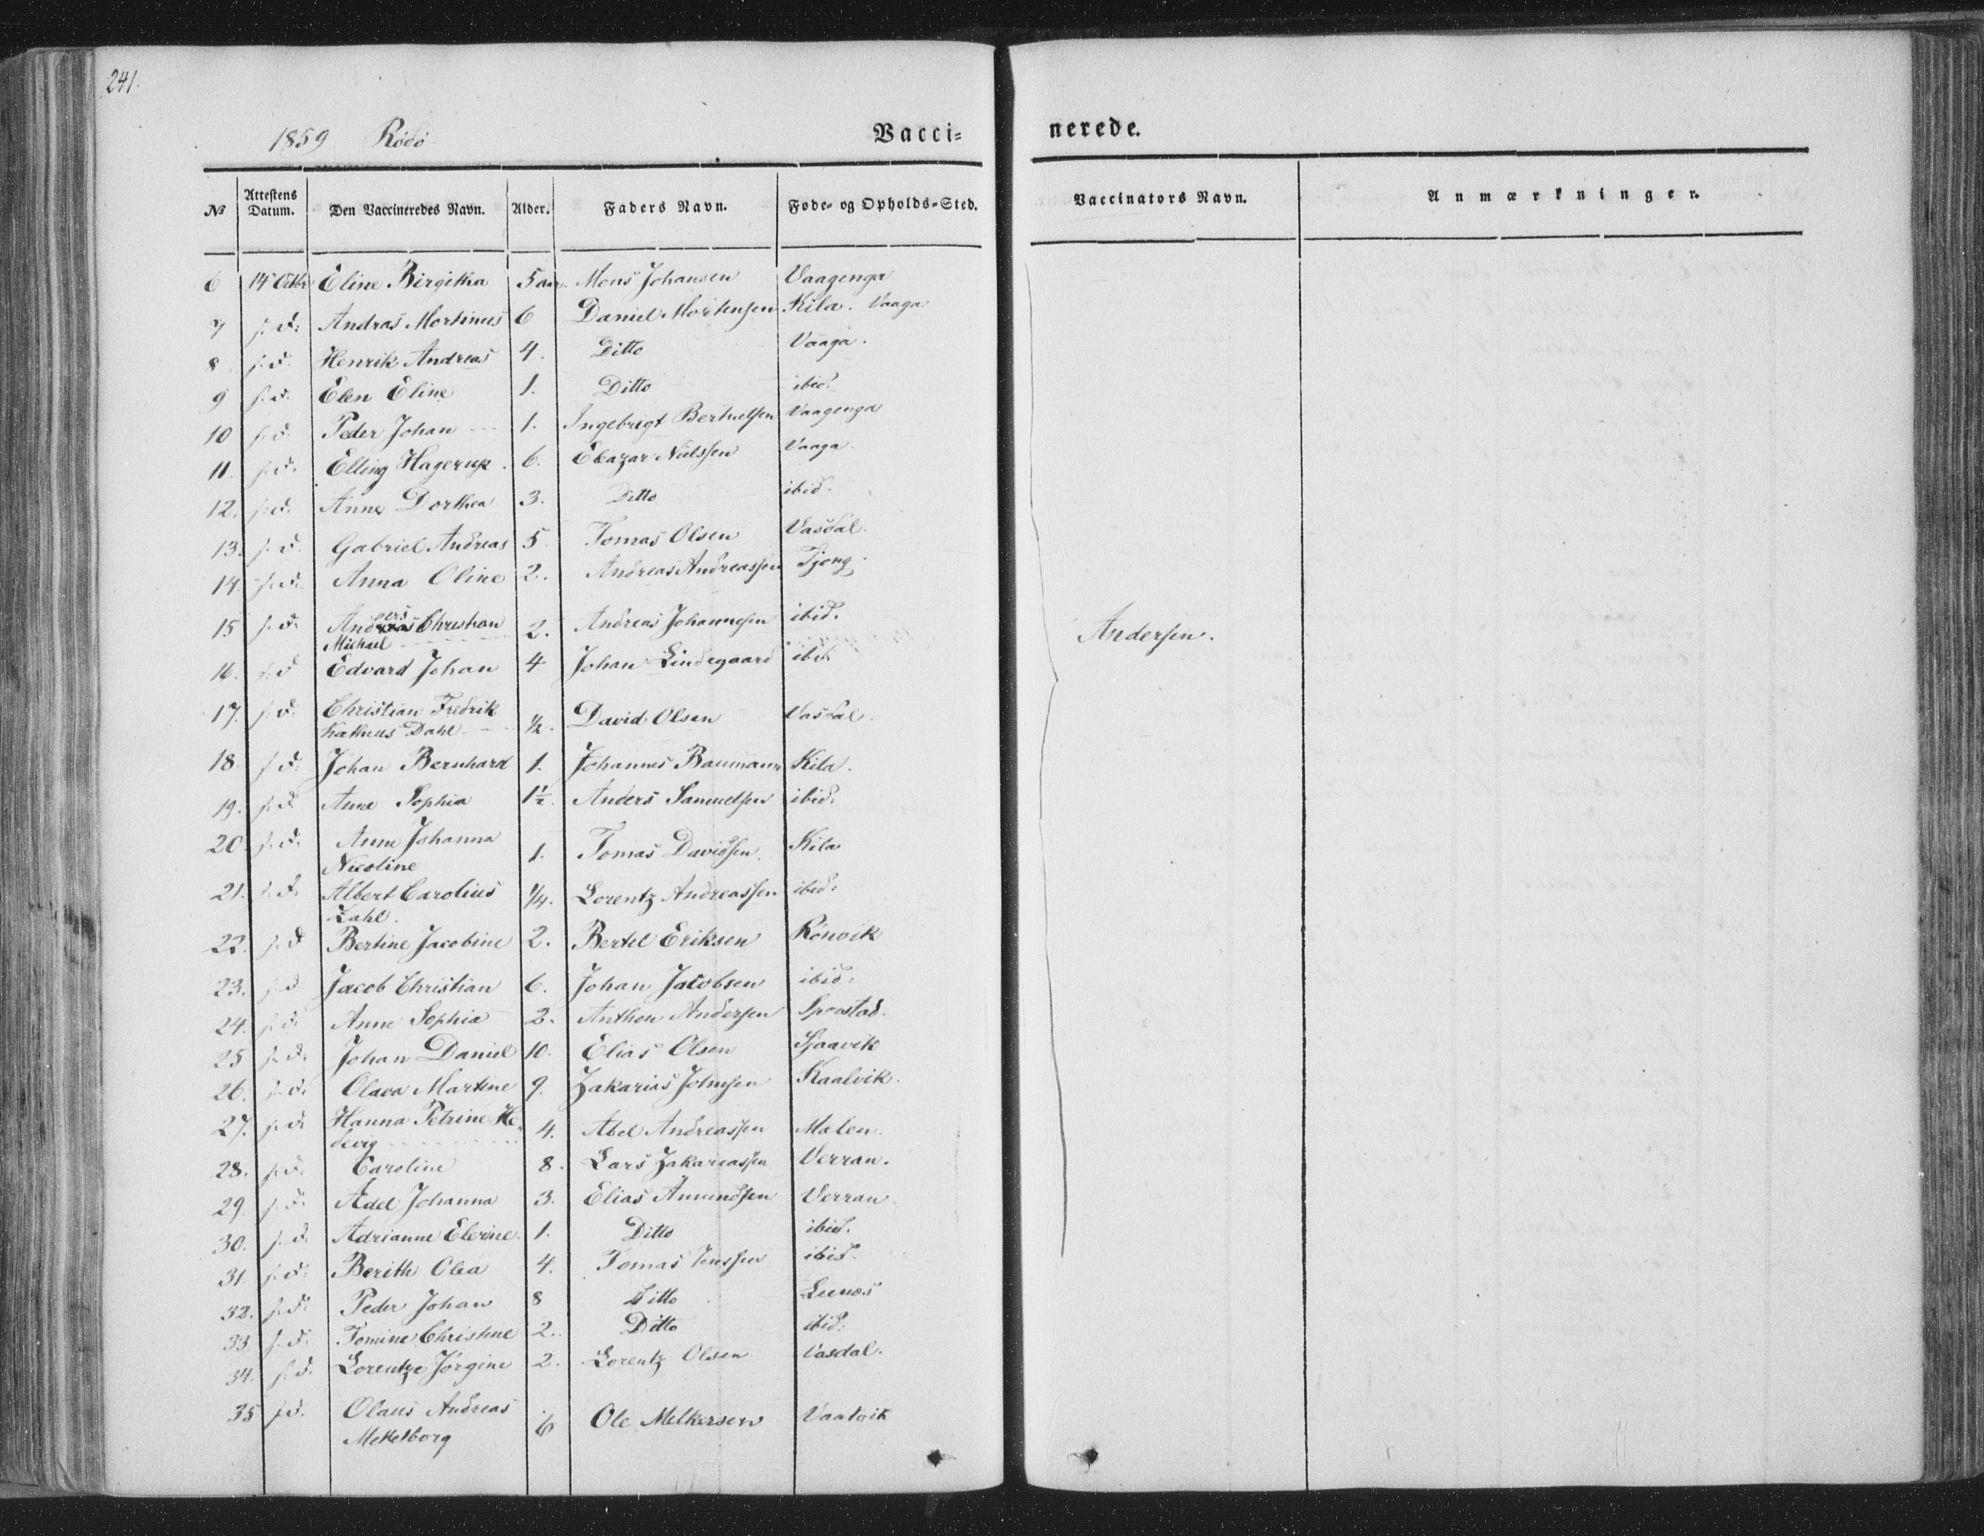 241.
1859 Rödö
Vacci=
nerede.
№ Attestens Datum. Den Vaccineredes Navn. Alder. Faders Navn. Føde- og Opholds-Sted.
Vaccinators Navn. Anmærkninger.
6 14 Octbr Eline Birgitha 5 aar. Mons Johansen Vaagenga
7 s. d. Andras Mortinus 6 Daniel Mortensen Kila. Vaaga
8 s. d. Henrik Andreas 4. Ditto Vaaga.
9 s. d. Elen Eline 1. Ditto ibid.
10 s. d. Peder Johan 1. Ingebrigt Berthelsen Vaagenga
11. s. d. Elling Hagerup. 6. Eleazar Nielssen Vaaga.
12. s. d. Anne Dorthea 3. Ditto ibid.
13. s. d. Gabriel Andreas 5 Tomas Olsen Vasdal.
14 s. d. Anna Oline 2. Andreas Andreassen Tjong.
15 s. d. Anders Christian 2. Andreas Johannesen ibid.
Michael
Andersen.
16. s. d Edvard Johan 4 Johan Lindegaard ibid
17. s. d. Christian Fredrik ½. David Olsen Vasdal.
Dahl
18 s. d. Johan Bernhard 1. Johannes Baumann Kila.
19. s. d. Anne Sophia 1½. Anders Samuelsen ibid.
20. s. d. Anne Johanna 1. Tomas Davidsen. Kila
Nicoline
21. s. d. Albert Carolius ¼. Lorentz Andreassen ibid.
Zahl.
22. s. d Bertine Jacobine 2. Bertel Eriksen Rönvik
23. s. d Jacob Christian 6. Johan Jacobsen ibid.
24. s. d. Anne Sophia 2. Anthon Andersen Sprostad.
25 s. d. Johan Daniel 10. Elias Olsen Sjaavik
26. s. d. Olava Martine 9. Zakarias Johnsen Kaalvik.
27. s. d. Hanna Petrine He- 4. Abel Andreassen Malen.
devig
28. s. d. Caroline 8. Lars Zakariassen Verran.
29. s. d. Adel Johanna 3. Elias Amundsen Verran
30. s. d. Adrianne Elerine. 1. Ditto ibid.
31. s. d. Berith Olea 4. Tomas Jenssen ibid.
32. s. d. Peder Johan 8 Ditto Lunes
33 s. d. Tomine Christine 2. Ditto ibid.
34. s. d. Lorentze Jörgine 2. Lorentz Olsen Vasdal.
35 s. d. Olaus Andreas 6 Ole Melkersen Vaatvik
Mekelborg